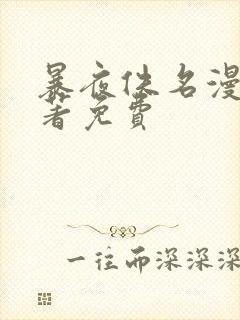 暴夜佚名漫
著免费
一往而深深深